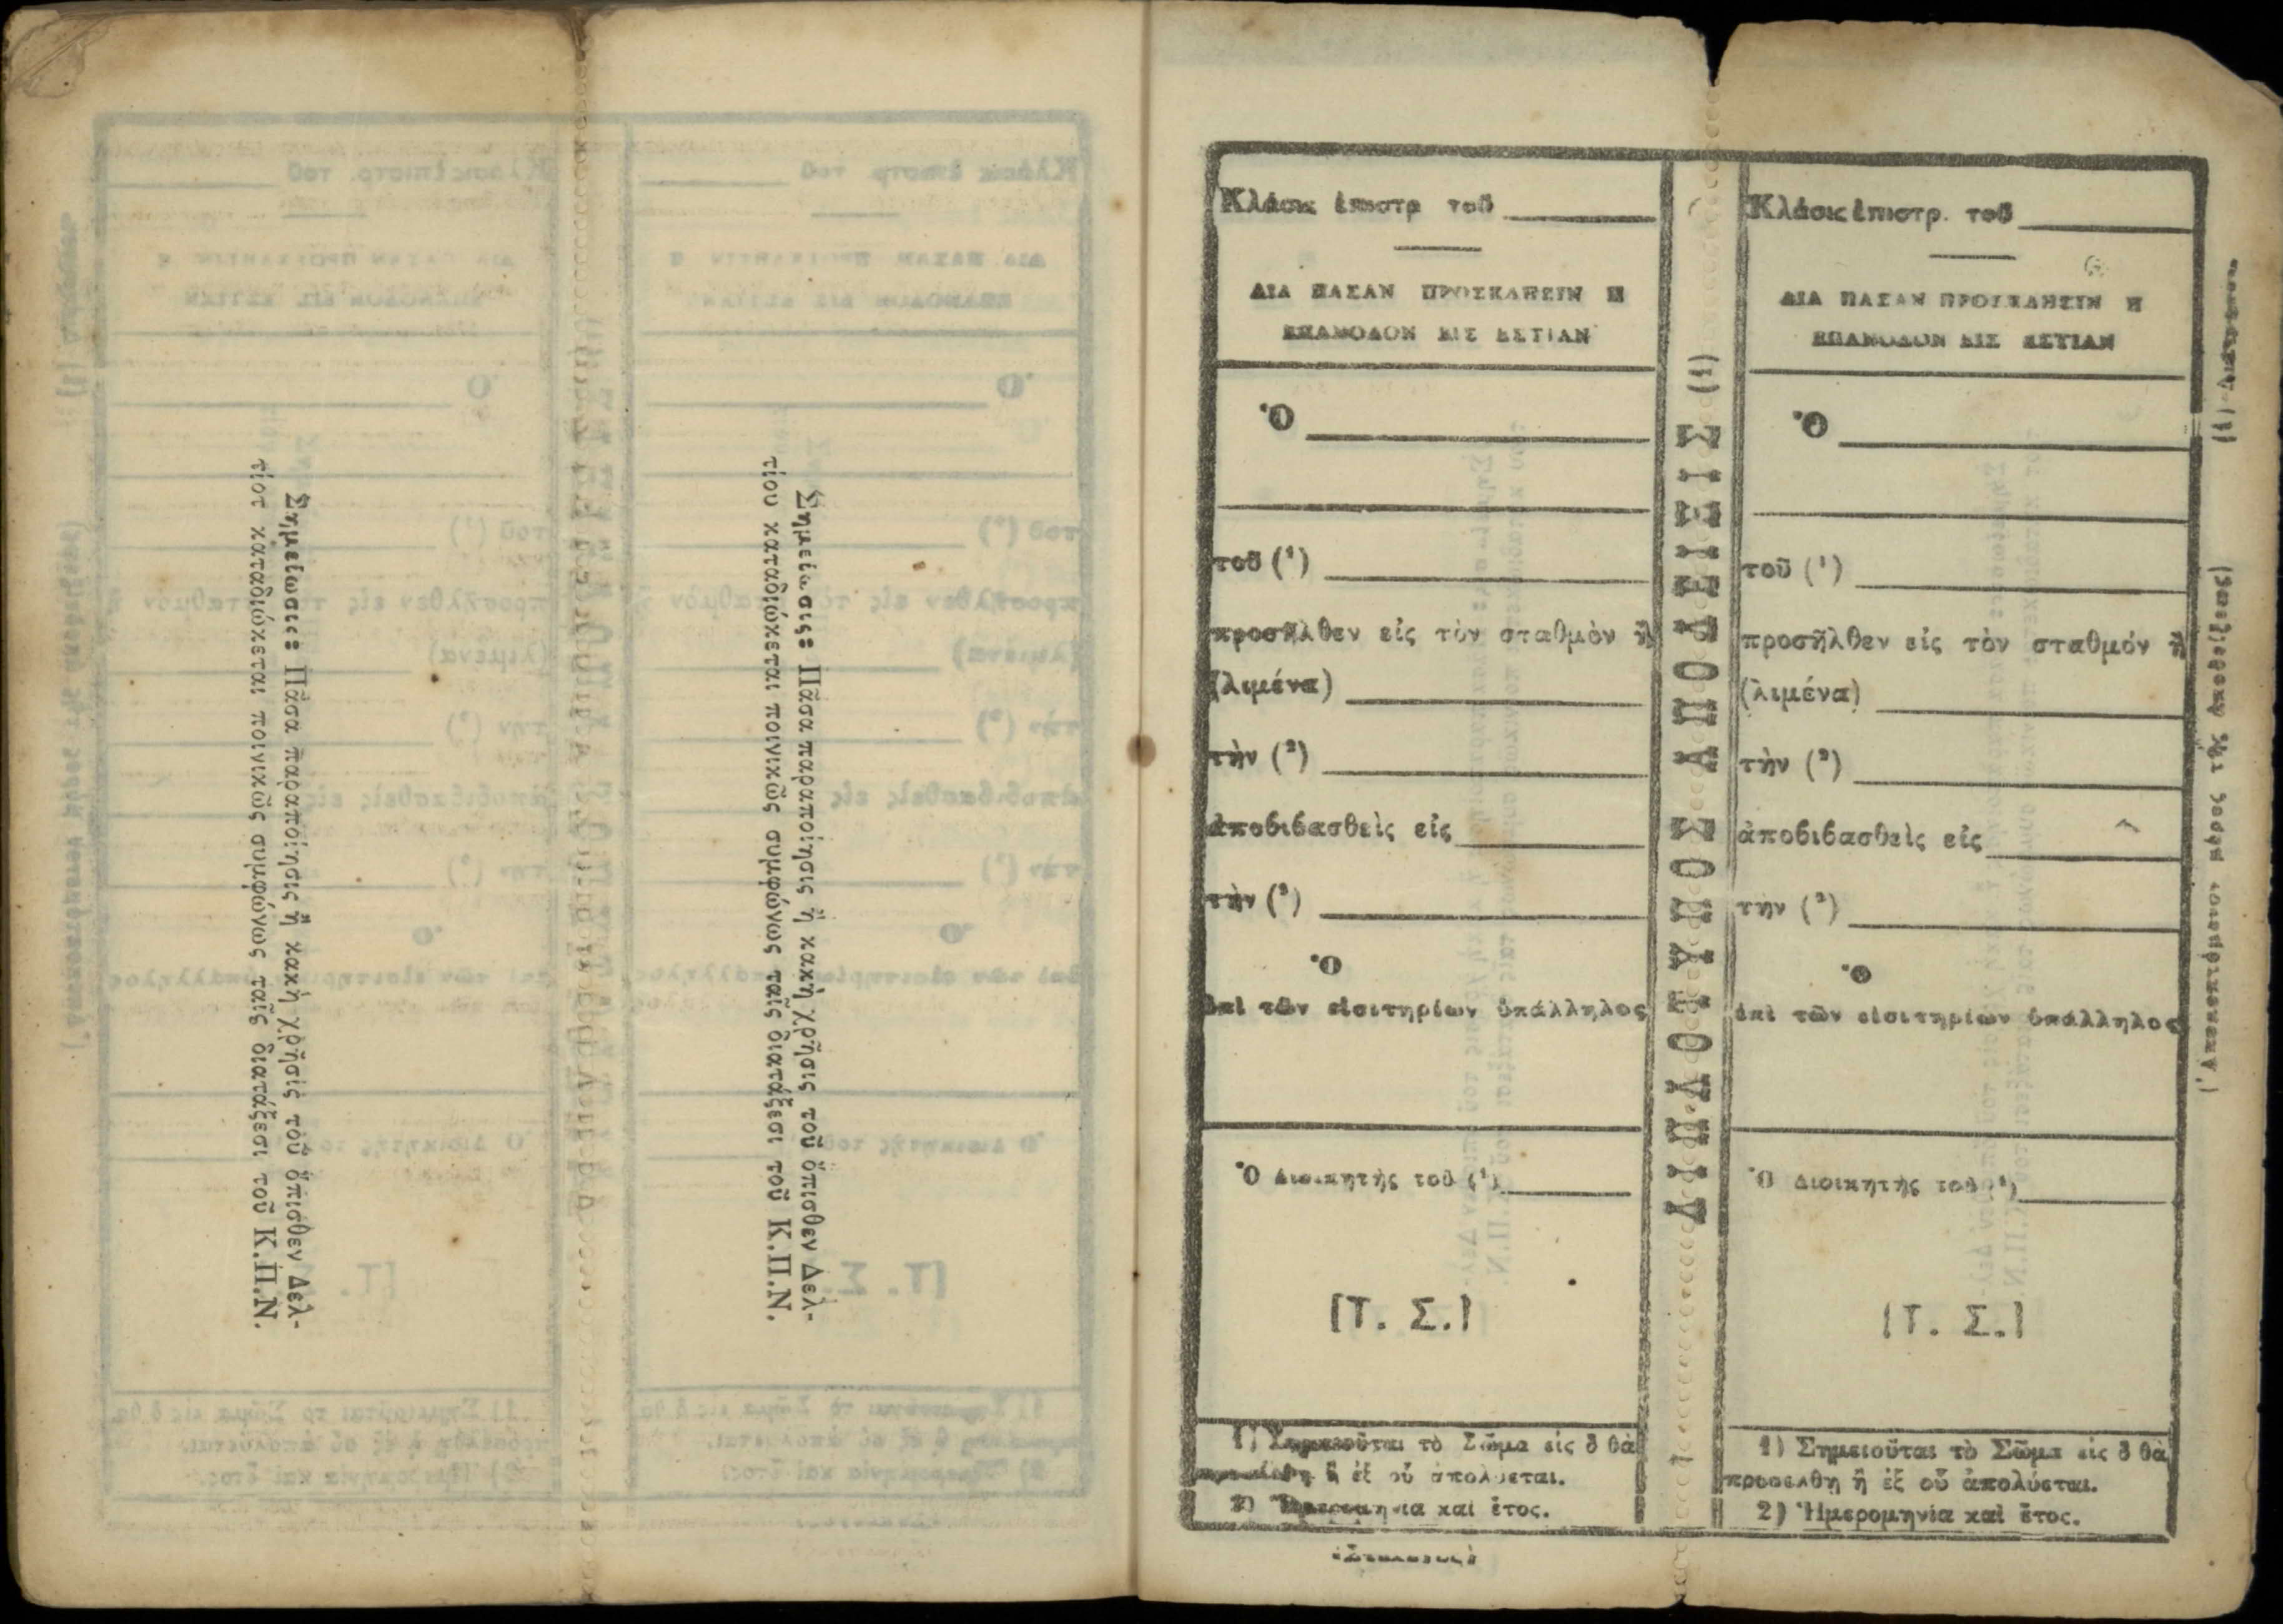 Σημείωσις: Πᾶσα παραποίησις ἢ κακὴ χρῆσίς τοῦ ὄπισθεν Δελ-
τίου καταδιώκεται ποινικῶς συμφώνως ταῖς διατάξεσι τοῦ Κ.Π.Ν.
Σημείωσις: Πᾶσα παραποίησις ἢ κακὴ χρῆσις τοῦ ὄπισθεν Δελ-
τίου καταδιώκεται ποινικῶς συμφώνως ταῖς διατάξεσι τοῦ Κ.Π.Ν.
Κλάσις ἐπιστρ τοῦ
ΔΙΑ ΠΑΣΑΝ ΠΡΟΣΚΛΗΣΙΝ Η
ΕΠΑΝΟΔΟΝ ΕΙΣ ΕΣΤΙΑΝ
Ὁ
τοῦ (¹)
προσῆλθεν εἰς τὸν σταθμὸν ἢ
(λιμένα)
τὴν (²)
ἀποβιβασθεὶς εἰς
τὴν (²)
Ὁ
ἐπὶ τῶν εἰσιτηρίων ὑπάλληλος
Ὁ Διοικητὴς τοῦ (¹)
[Τ. Σ.]
1) Σημειοῦται τὸ Σῶμα εἰς ὃ θὰ
ἢ ἐξ οὗ ἀπολύεται.
2) Ἡμερομηνία καὶ ἔτος.
(Στέλεχος)
ΔΙΠΛΟΤΥΠΟΣ ΑΠΟΔΕΙΞΙΣ (1)
Κλάσις ἐπιστρ. τοῦ
ΔΙΑ ΠΑΣΑΝ ΠΡΟΣΚΛΗΣΙΝ Η
ΕΠΑΝΟΔΟΝ ΕΙΣ ΕΣΤΙΑΝ
Ὁ
τοῦ (¹)
προσῆλθεν εἰς τὸν σταθμόν ἢ
(λιμένα)
τὴν (²)
ἀποβιβασθεὶς εἰς
τὴν (²)
Ὁ
ἐπὶ τῶν εἰσιτηρίων ὑπάλληλος
Ὁ Διοικητής τοῦ (¹)
[Τ. Σ.]
1) Σημειοῦται τὸ Σῶμα εἰς ὃ θὰ
προσέλθῃ ἢ ἐξ οὗ ἀπολύεται.
2) Ἡμερομηνία καὶ ἔτος.
(Ἀποκοπτόμενον μέρος τῆς ἀποδείξεως)